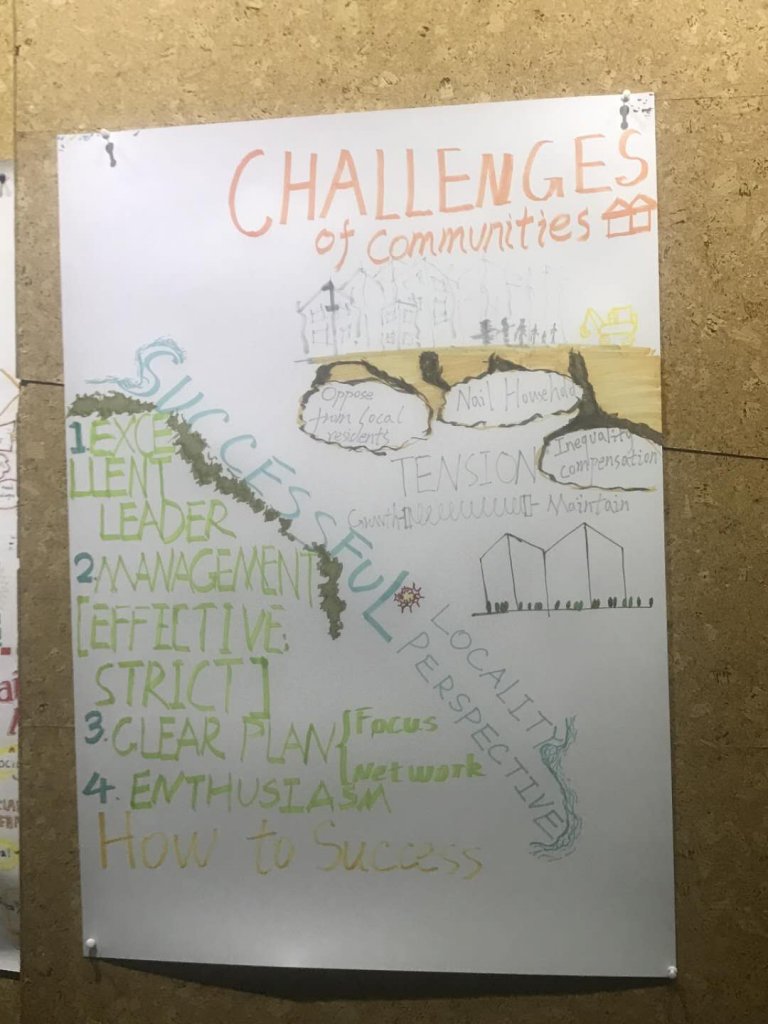 CHALLENGES
of communities
Oppose
from local
residents
Nail Household
Inequality
compensation
TENSION
Growth
Maintain
SUCCESSFUL
LOCALITY
PERSPECTIVE
1 EXCE
LLENT
LEADER
2. MANAGEMENT
[EFFECTIVE;
STRICT]
3. CLEAR PLAN { Focus
Network
4. ENTHUSIASM
How to Success